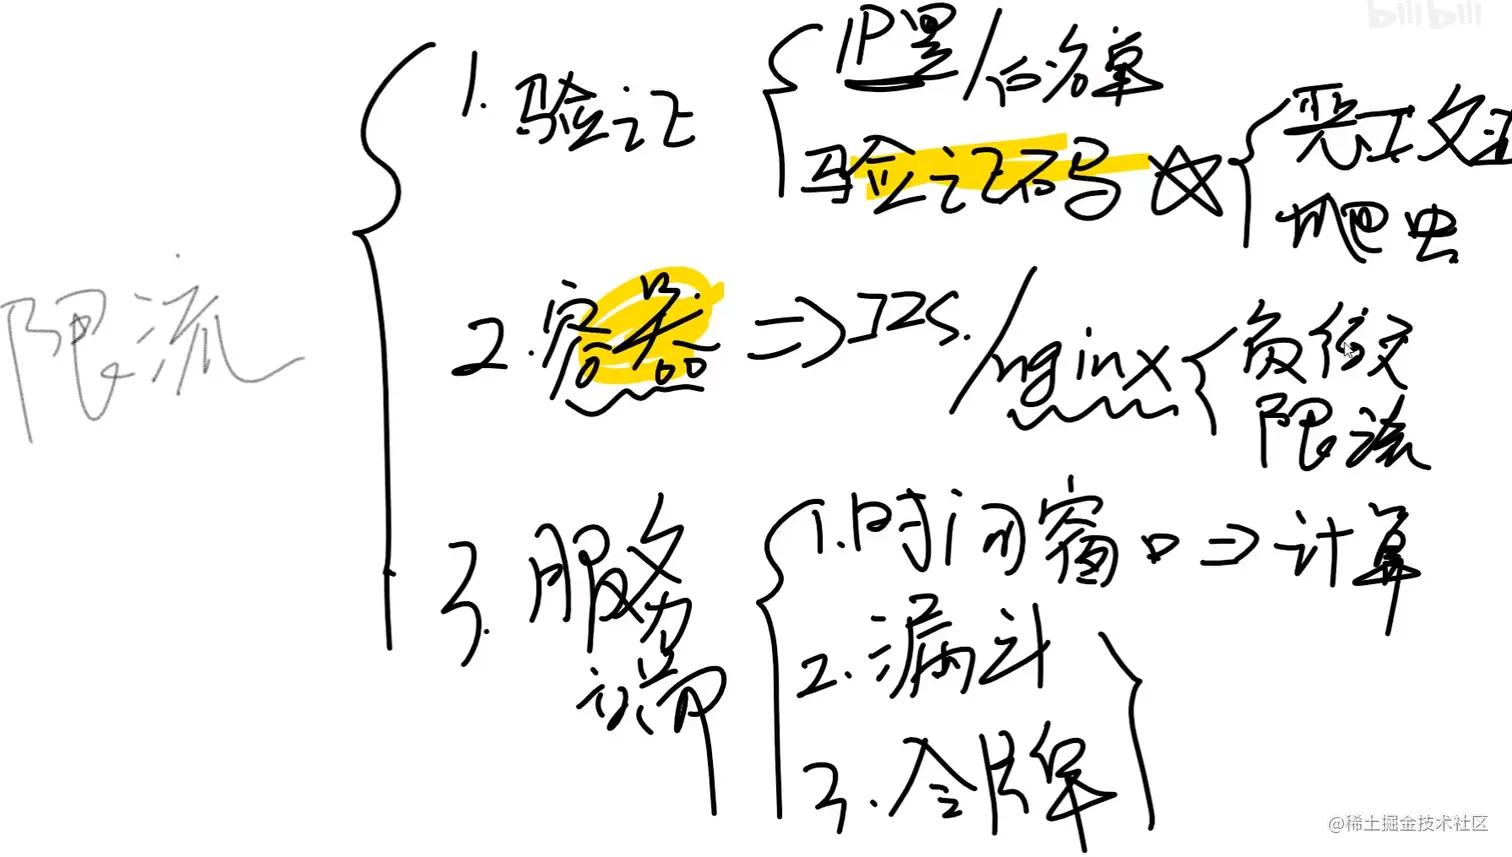 限流
1. 验证
IP黑/白名单
验证码
恶意攻击
爬虫
2. 容器 => IIS. /nginx
负载
限流
3. 服务端
1. 时间窗口 => 计算
2. 漏斗
3. 令牌
bilibili
@稀土掘金技术社区